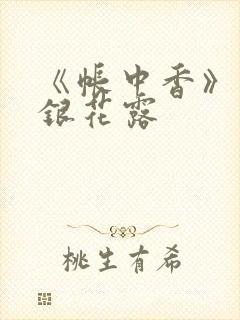 《帐中香》
银花露
桃生有希